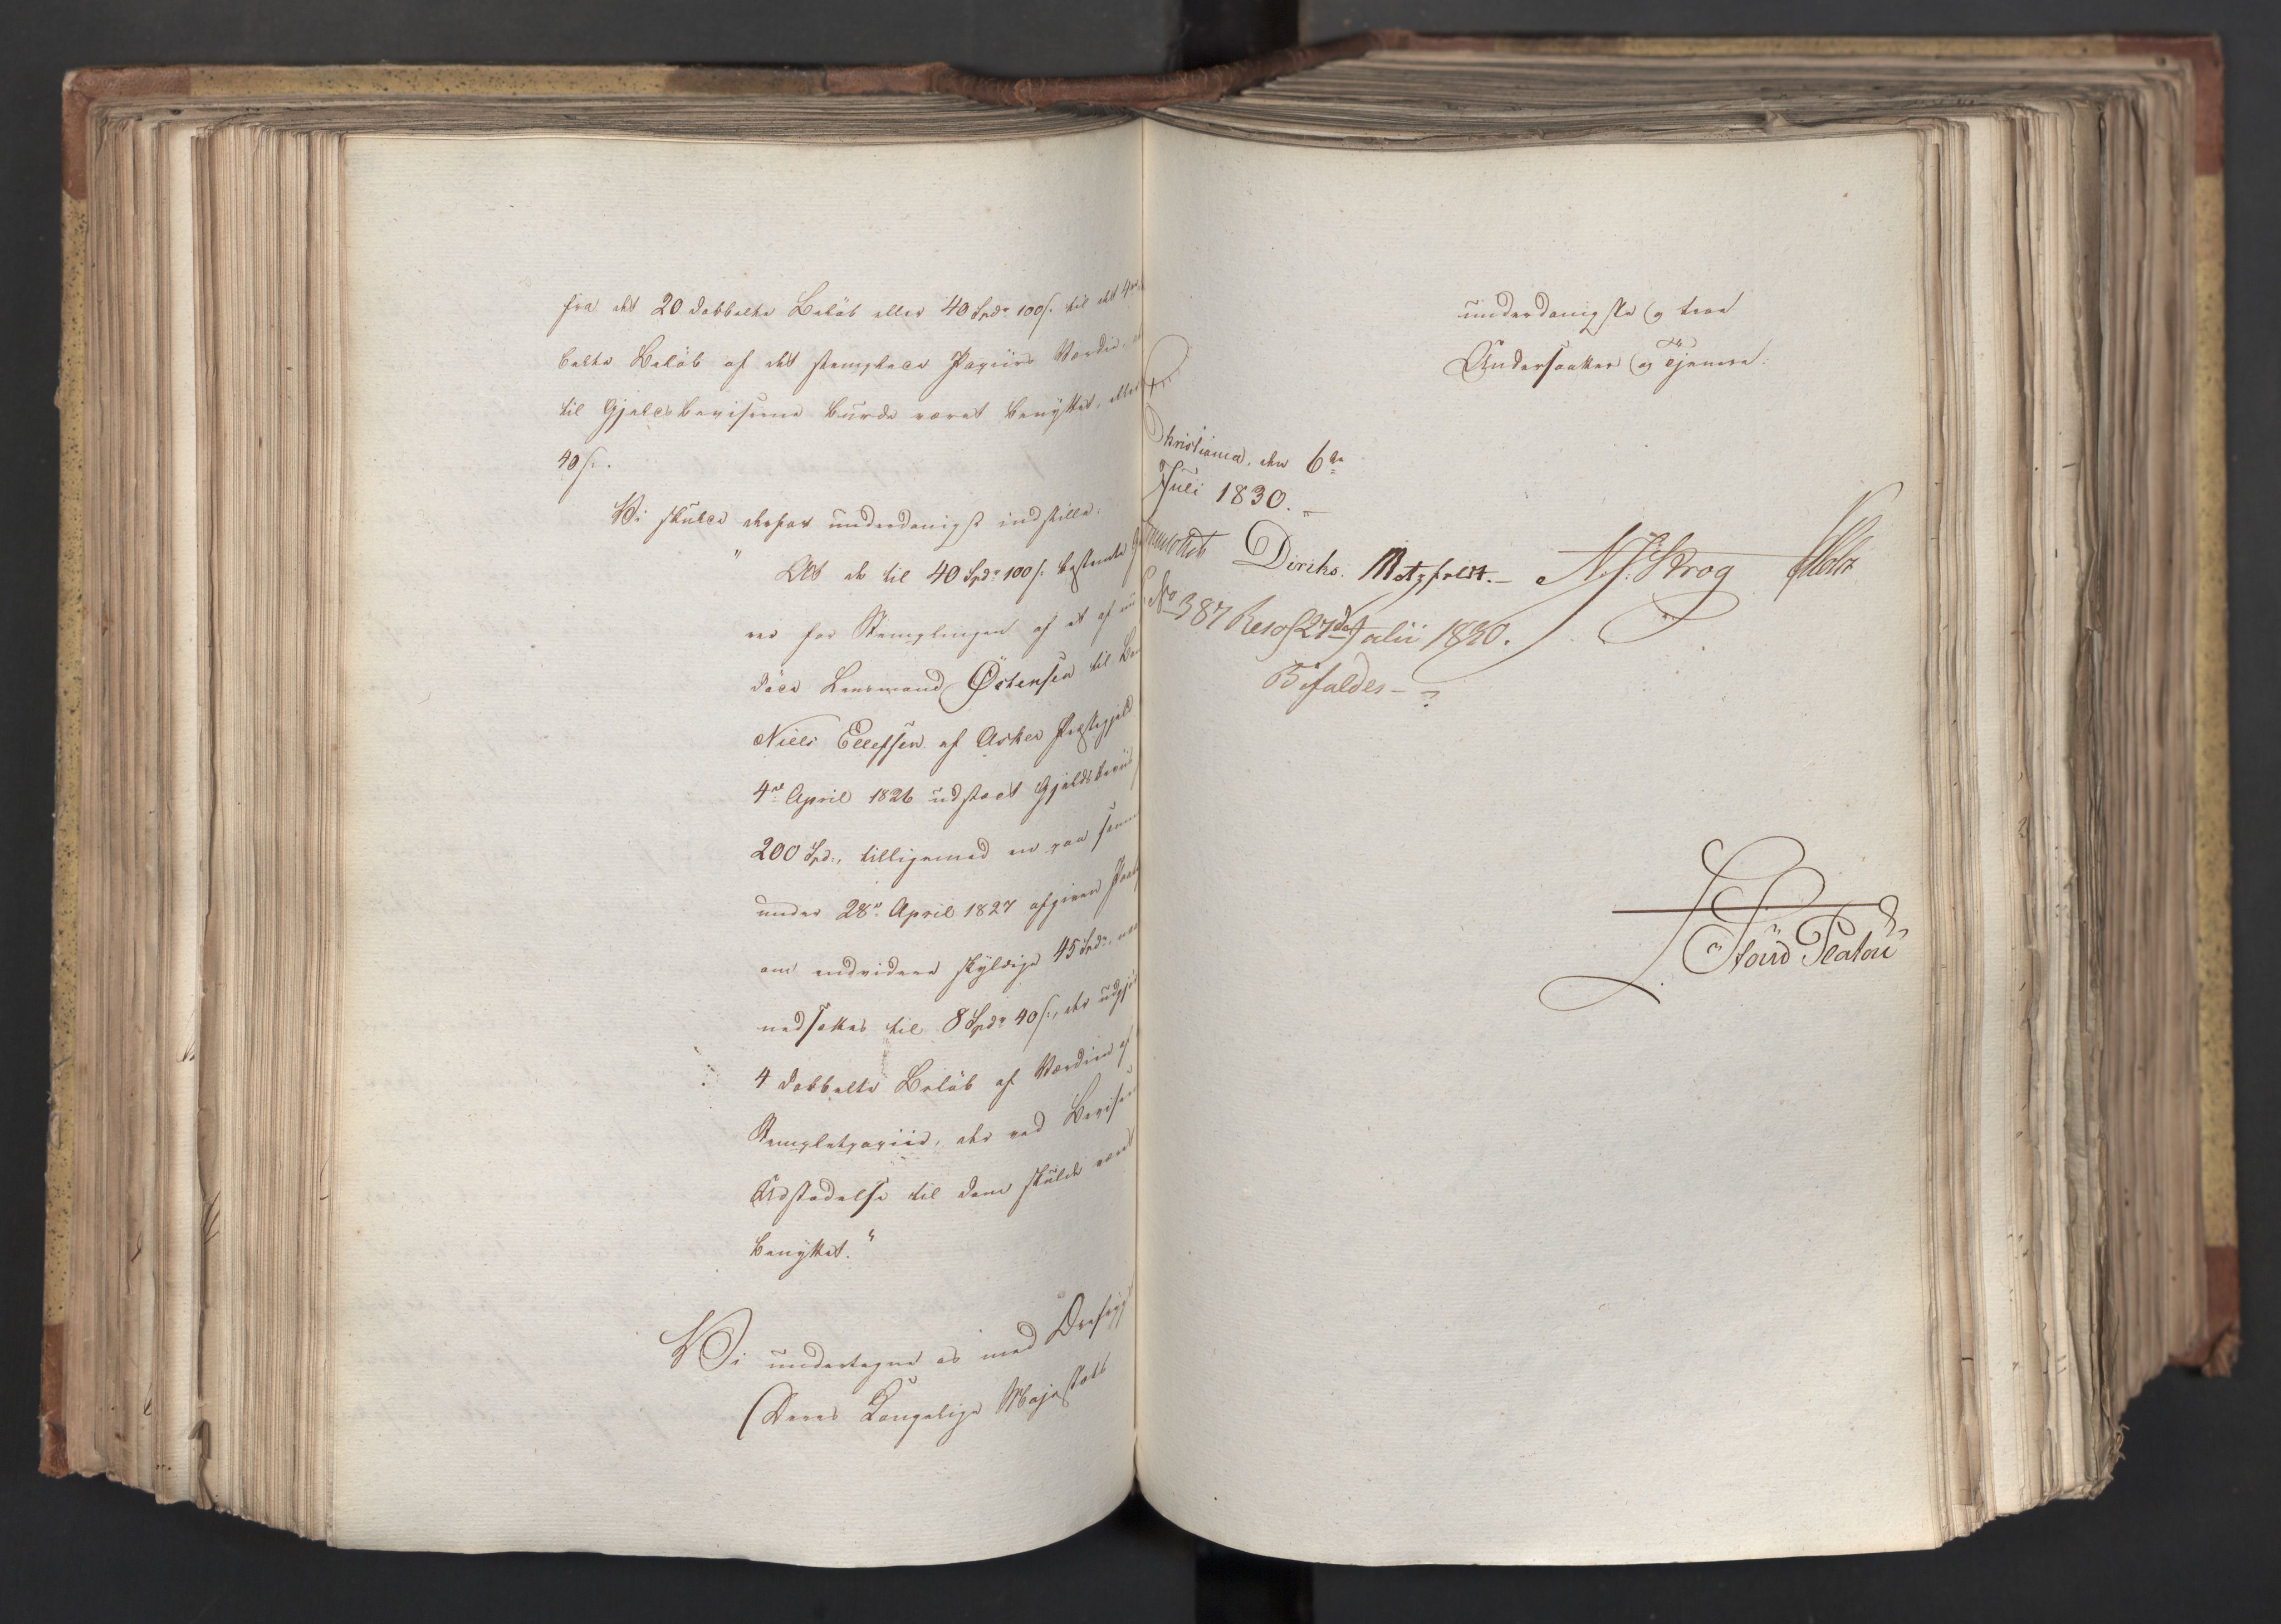 fra det 20 dobbelte Beløb eller 40 Spdr 100 s. til det 4re
belte Beløb af det stemplede Papiirs Værdie,
til Gjeldsbeviserne burde været benyttet, eller
40 s.
Vi skulde derfor underdanigst indstille:
" At de til 40 Spdr 100 s. bestemte
rer for Stemplingen af et af
døde Lensmand Østensen til
Niels Ellefsen af Asker Præstegjeld
4de April 1826 udstædt Gjeldsbeviis
200 Spd:, tilligemed en paa samme
under 28de April 1827 afgiven
om endvidere skyldige 45 Spdr,
nedsættes til 8 Spdr 40 s., der udgjør
4 dobbelte Beløb af Værdien af
Stempletpapiir, der ved Bevisernes
Udstædelse til dem skulde været
benyttet."
Vi undertegne os med
Deres Kongelige Majestæts
underdanigste og troe
Undersaatter og Tjenere.
Christiania, den 6te
Juli 1830.
Diriks. Motzfeldt. N. J. Krog Holst
No 387 Resol 27de Julii 1830.
Bifaldes
Stoud Platou